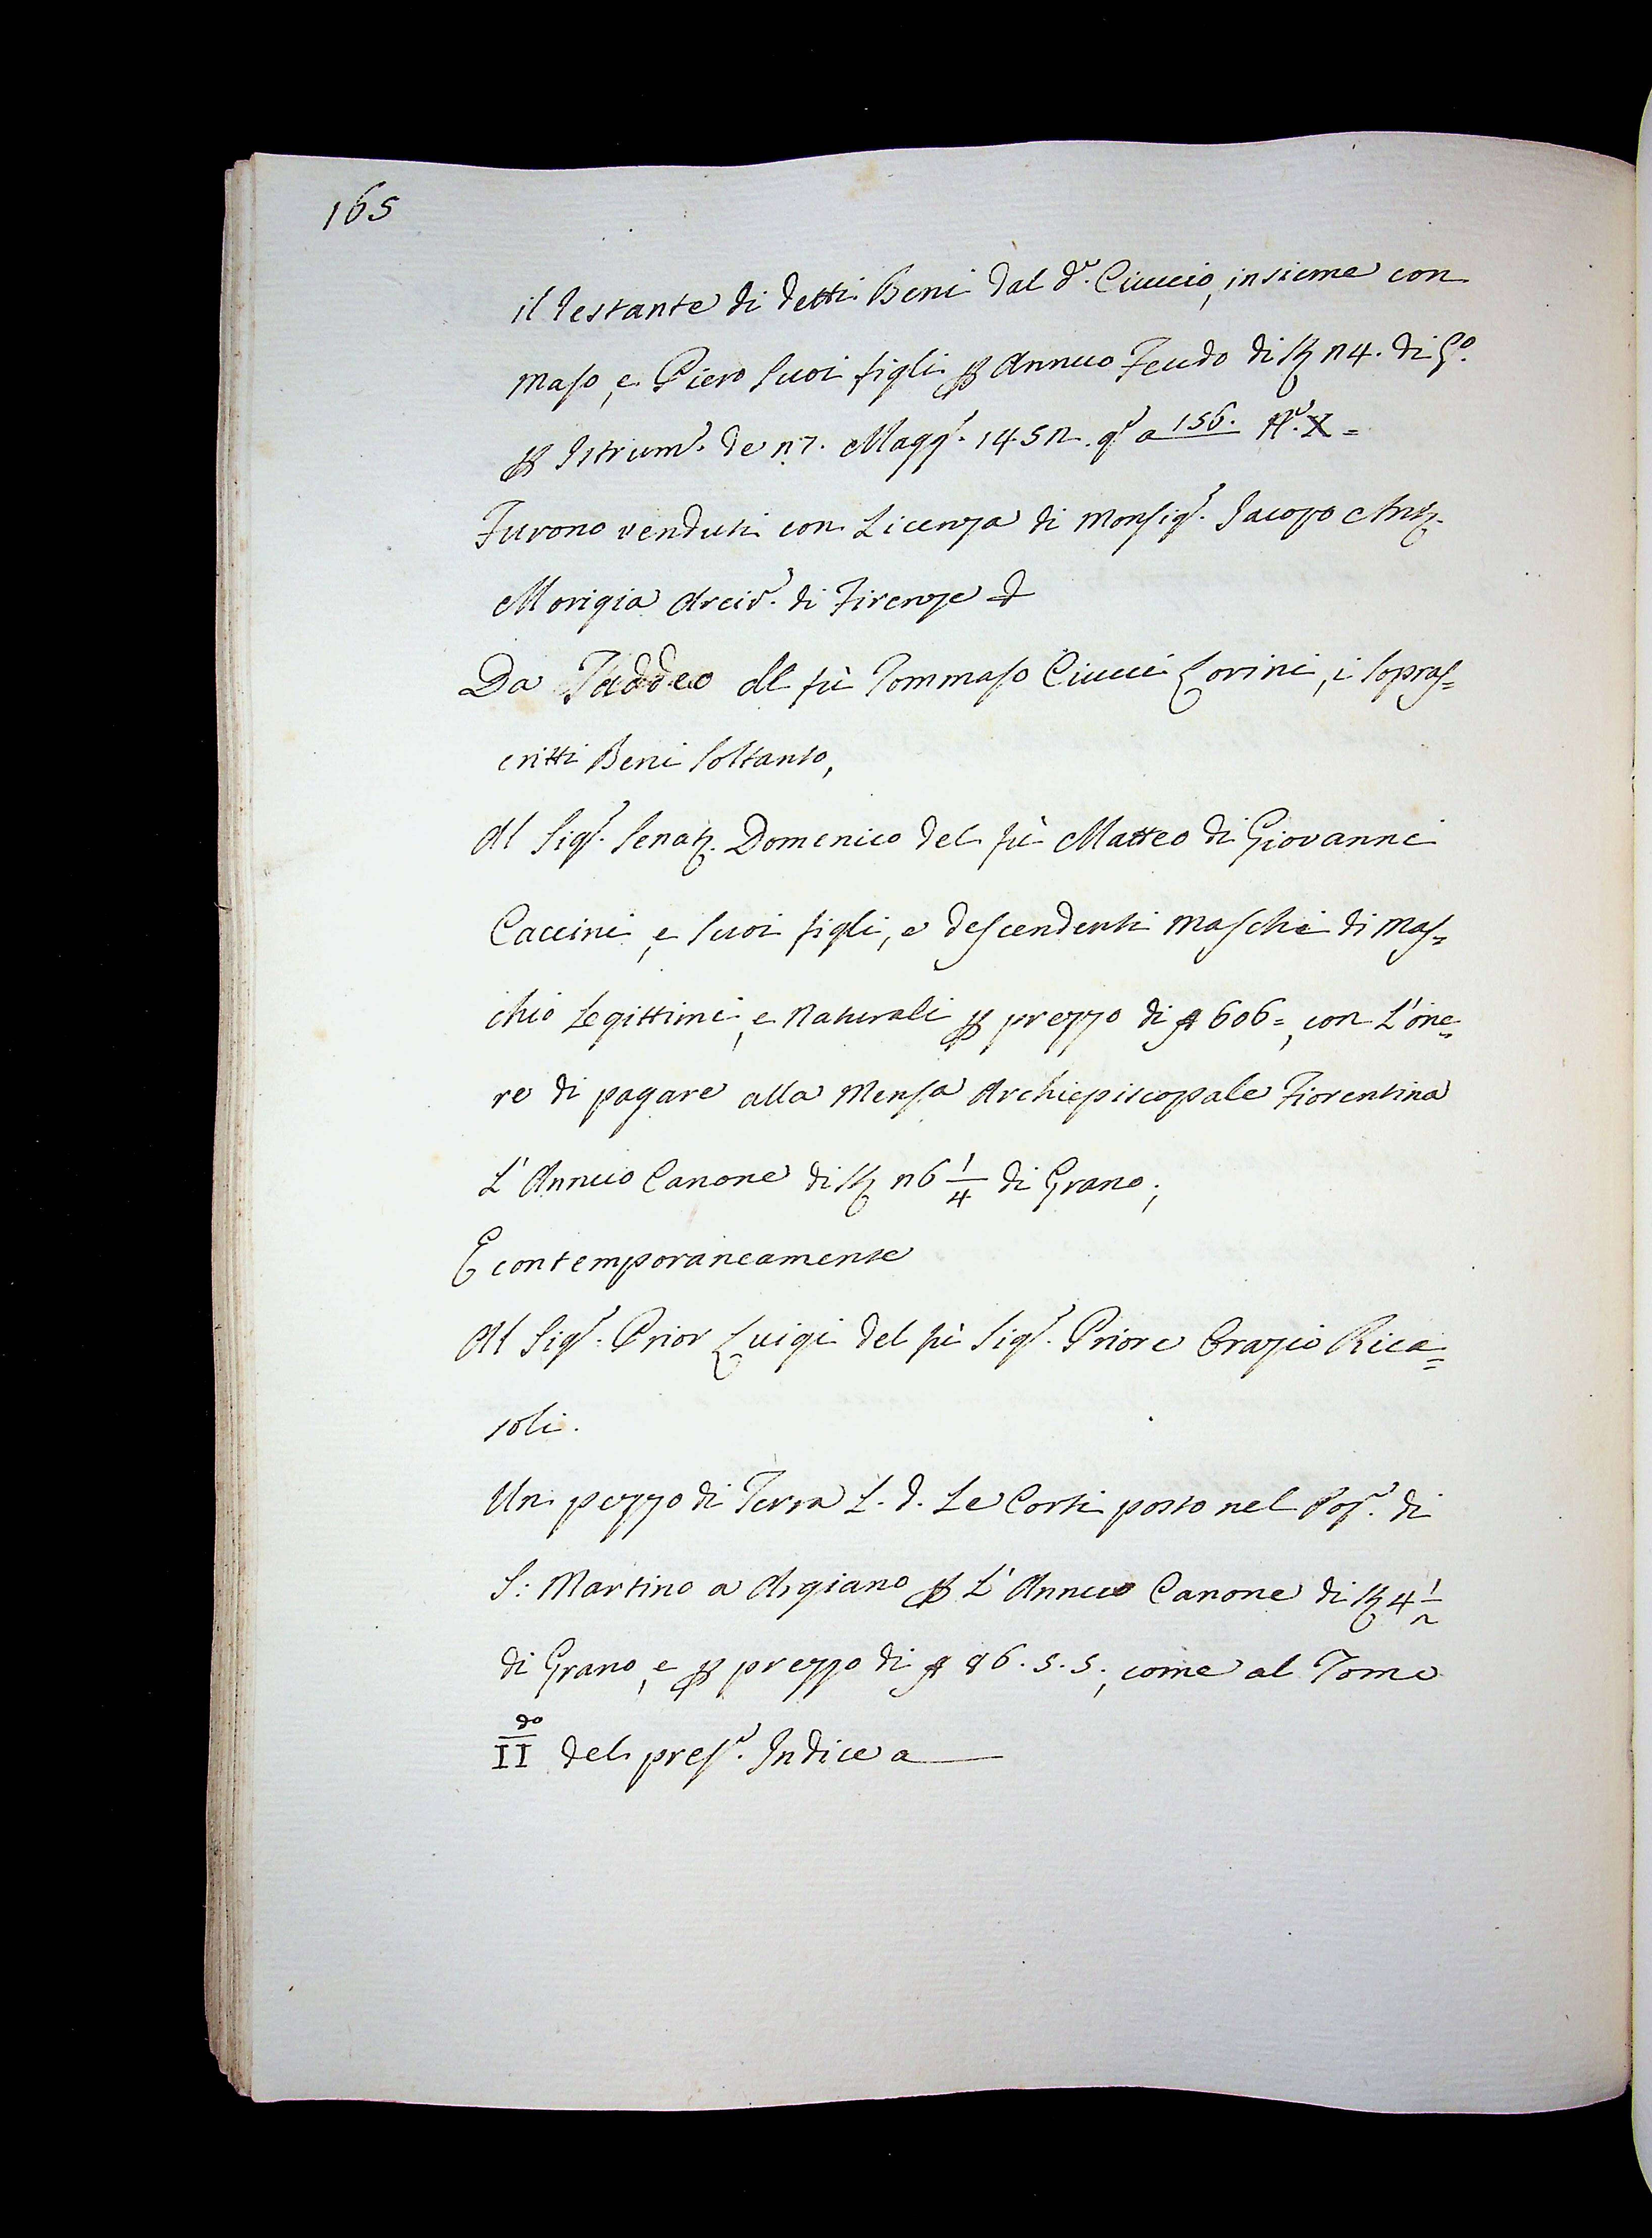 165
il restante di detti Beni dal d.º Ciuccio, insieme con
Maso, e Piero suoi figli p annuo Feudo di st 24. di G.º
p Istrum.º de 27. Magg.º 1452. q.º a 156. N.º X =
Furono venduti con Licenza di Monsig.r Jacopo Ant.
Morigia Arciv.º di Firenze
Da Taddeo del fù Tommaso Ciucci Lorini, i sopras=
critti Beni soltanto,
Al Sig.r Senat. Domenico del fù Matteo di Giovanni
Caccini, e suoi figli, e descendenti maschi di mas=
chio Legittimi, e Naturali p prezzo di 606=, con L'one=
re di pagare alla Mensa Archiepiscopale Fiorentina
L'Annuo Canone di st 26 1/4 di Grano;
E contemporaneamente
Al Sig.r Prior Luigi del fù Sig.r Priore Orazio Rica=
soli.
Un pezzo di Terra L. d. Le Corti posto nel Pop.º di
S: Martino a Argiano p L'Annuo Canone di st 4 1/2
di Grano, e p prezzo di 86. 5. 5., come al Tomo
II do del pres.º Indice a